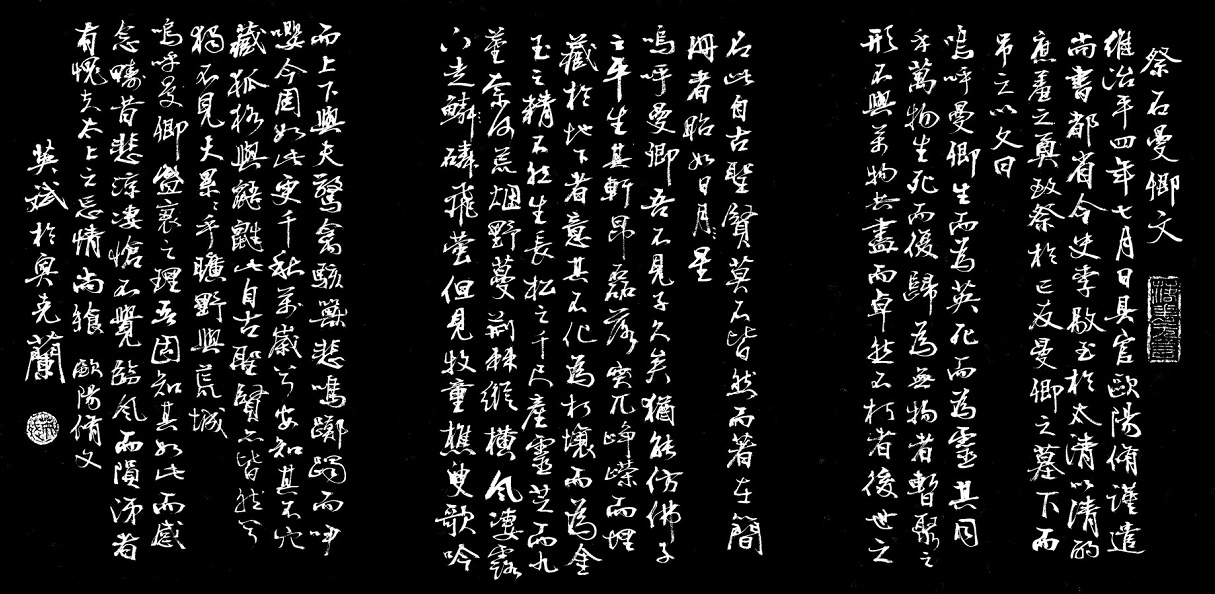 祭石曼卿文
維治平四年七月日具官歐陽脩謹遣
尚書都省令史李敭至於太清以清酌
庶羞之奠致祭於亡友曼卿之墓下而
吊之以文曰
嗚呼曼卿生而為英死而為靈其同
乎萬物生死而復歸為無物者暫聚之
形不與萬物共盡而卓然不朽者後世之
名此自古聖賢莫不皆然而著在簡
冊者昭如日月星
嗚呼曼卿吾不見子久矣猶能仿佛子
之平生其軒昂磊落突兀崢嶸而埋
藏於地下者意其不化為朽壤而為金
玉之精不然生長松之千尺產靈芝而九
莖奈何荒烟野蔓荊棘縱橫風淒露
下走鱗磷飛螢但見牧童樵叟歌吟
而上下與夫驚禽駭獸悲鳴躑躅而咿
嚶今固如此更千秋萬歲兮安知其不穴
藏狐狢與鼯鼪此自古聖賢亦皆然兮
獨不見夫累累乎曠野與荒城
嗚呼曼卿盛衰之理吾固知其如此而感
念疇昔悲涼淒愴不覺臨風而隕涕者
有愧夫太上之忘情尚饗 歐陽脩文
英斌於奧克蘭